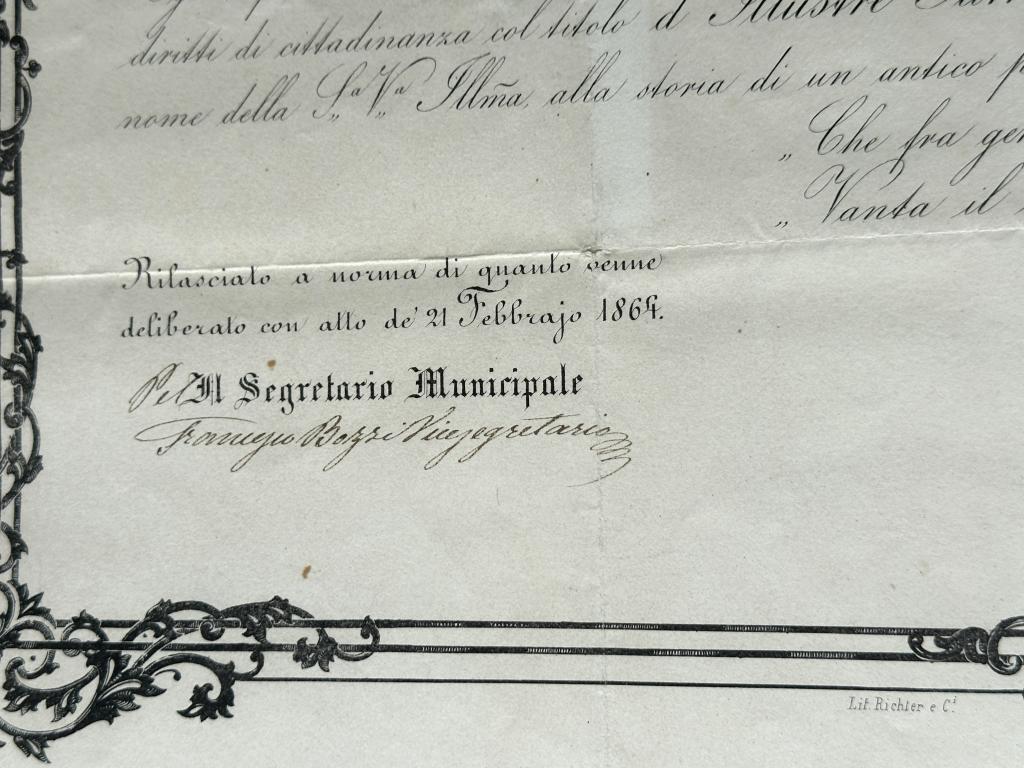 diritti di cittadinanza col titolo d' Illustre
nome della S.ª V.ª Illm̃a, alla storia di un antico
„ Che fra
„ Vanta il
Rilasciato a norma di quanto venne
deliberato con atto de' 21 Febbrajo 1864.
Pel Il Segretario Municipale
Bozzi Vicesegretario
Lit. Richter e C.i